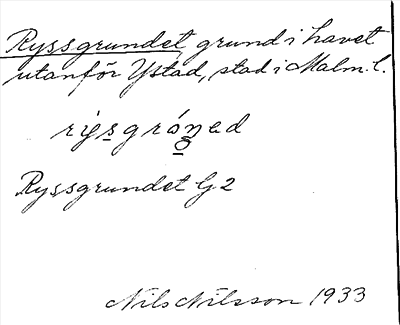 Ryssgrundet, grund i havet
utanför Ystad, stad i Malm. l.
Ryssgrundet G2
Nils Nilsson 1933